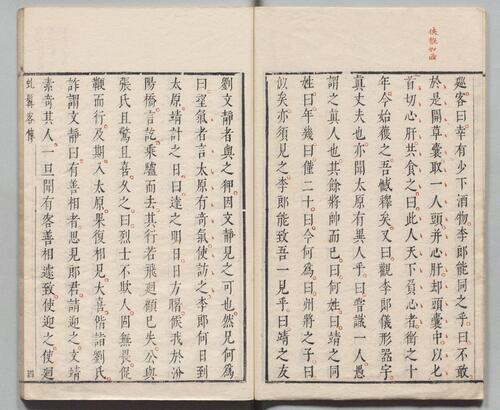 俠態如画
廵客曰幸有少下酒物李郎能同之乎曰不敢
於是開革囊取一人頭并心肝却頭囊中以匕
首切心肝共食之曰此人天下負心者銜之十
年今始獲之吾憾釋矣又曰觀李郎儀形器宇
真丈夫也亦聞太原有異人乎曰嘗識一人愚
謂之真人也其餘將帥而已曰何姓曰靖之同
姓曰年幾曰僅二十曰今何為曰州將之子曰
似矣亦須見之李郎能致吾一見乎曰靖之友
劉文靜者與之狎因文靜見之可也然見何為
曰望氣者言太原有奇氣使訪之李郎何日到
太原靖計之日曰達之明日日方曙候我於汾
陽橋言訖乘驢而去其行若飛迴顧已失公與
張氏且驚且喜久之曰烈士不欺人固無畏促
鞭而行及期入太原果復相見大喜偕詣劉氏
詐謂文靜曰有善相者思見郎君請迎之文靖
素奇其人一旦聞有客善相遽致使迎之使迴
虬髯客傳 四